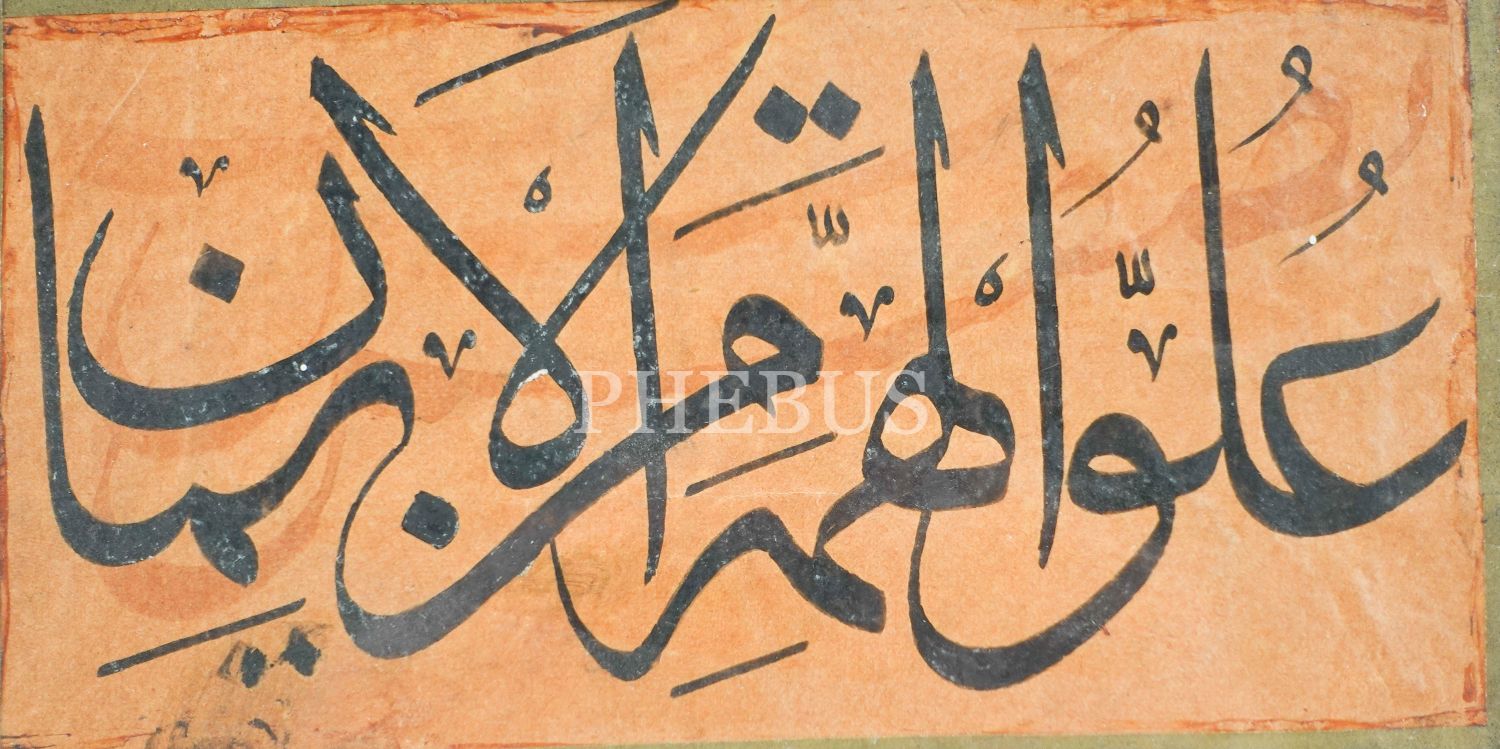 عُلُوُّ الهِمَّةِ مِنَ الإِيمَانِ
PHEBUS